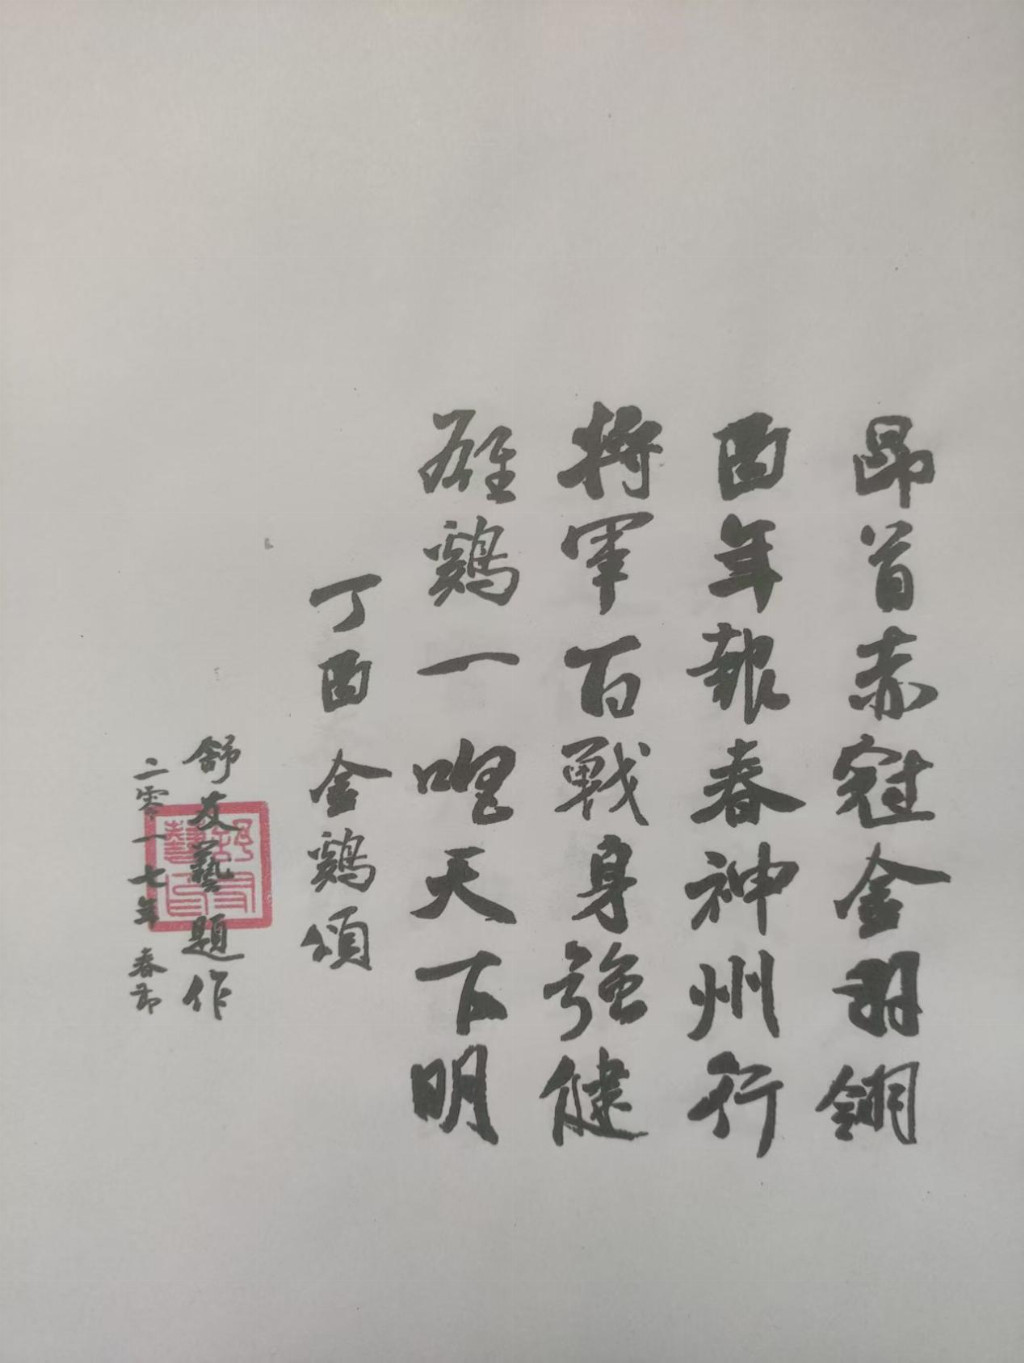 昂首赤冠金羽翎
酉年報春神州行
將軍百戰身強健
雄鷄一唱天下明
丁酉 金鷄頌
舒友藝題作
二零一七年 春節
舒友藝印